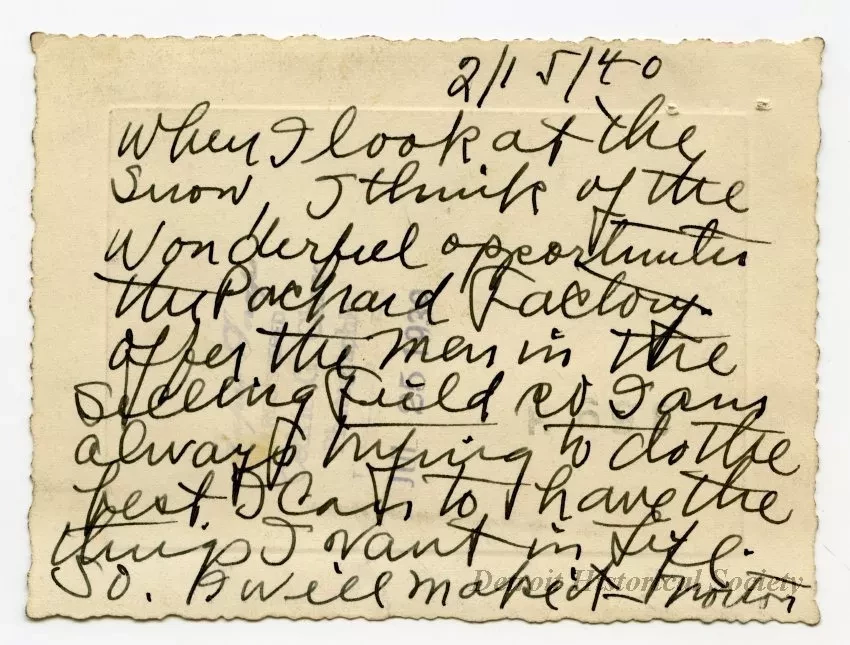 2/15/40
When I look at the
Snow, I think of the
Wonderful opportunites
the Packard Factory.
offer the Men in the
Selling Field so I am
always trying to do the
best I Can to have the
things I want in Life.
So. I will make it
Detroit Historical Society